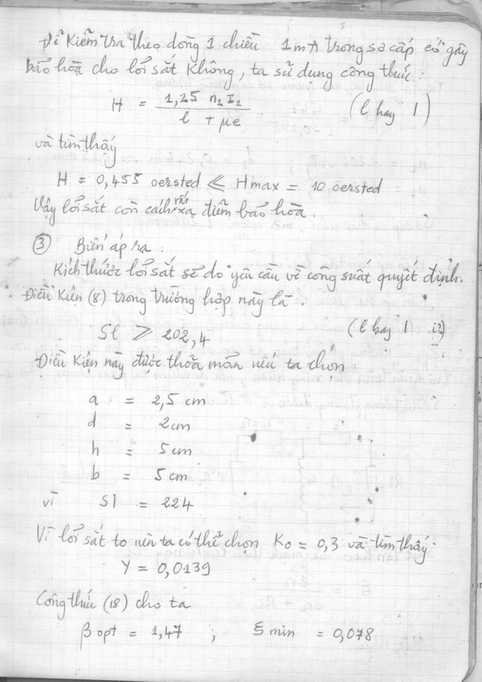 Để kiểm tra theo dòng 1 chiều 1 mA trong sơ cấp có gây
bão hòa cho lõi sắt không, ta sử dụng công thức:
H = 1,25 n₂ I₂ / l + μe (l hay 1)
và tìm thấy
H = 0,455 oersted ≪ Hmax = 10 oersted
Vậy lõi sắt còn cách rất xa điểm bão hòa.
③ Biến áp ra.
Kích thước lõi sắt sẽ do yêu cầu về công suất quyết định.
Điều kiện (8) trong trường hợp này là.
Sl ⩾ 202,4 (l hay 1
Điều kiện này được thỏa mãn nếu ta chọn
a = 2,5 cm
d = 2cm
h = 5 cm
b = 5 cm
vì Sl = 224
Vì lõi sắt to nên ta có thể chọn Ko = 0,3 và tìm thấy.
Y = 0,0139
Công thức (18) cho ta
β opt = 1,47 ; ξ min = 0,078